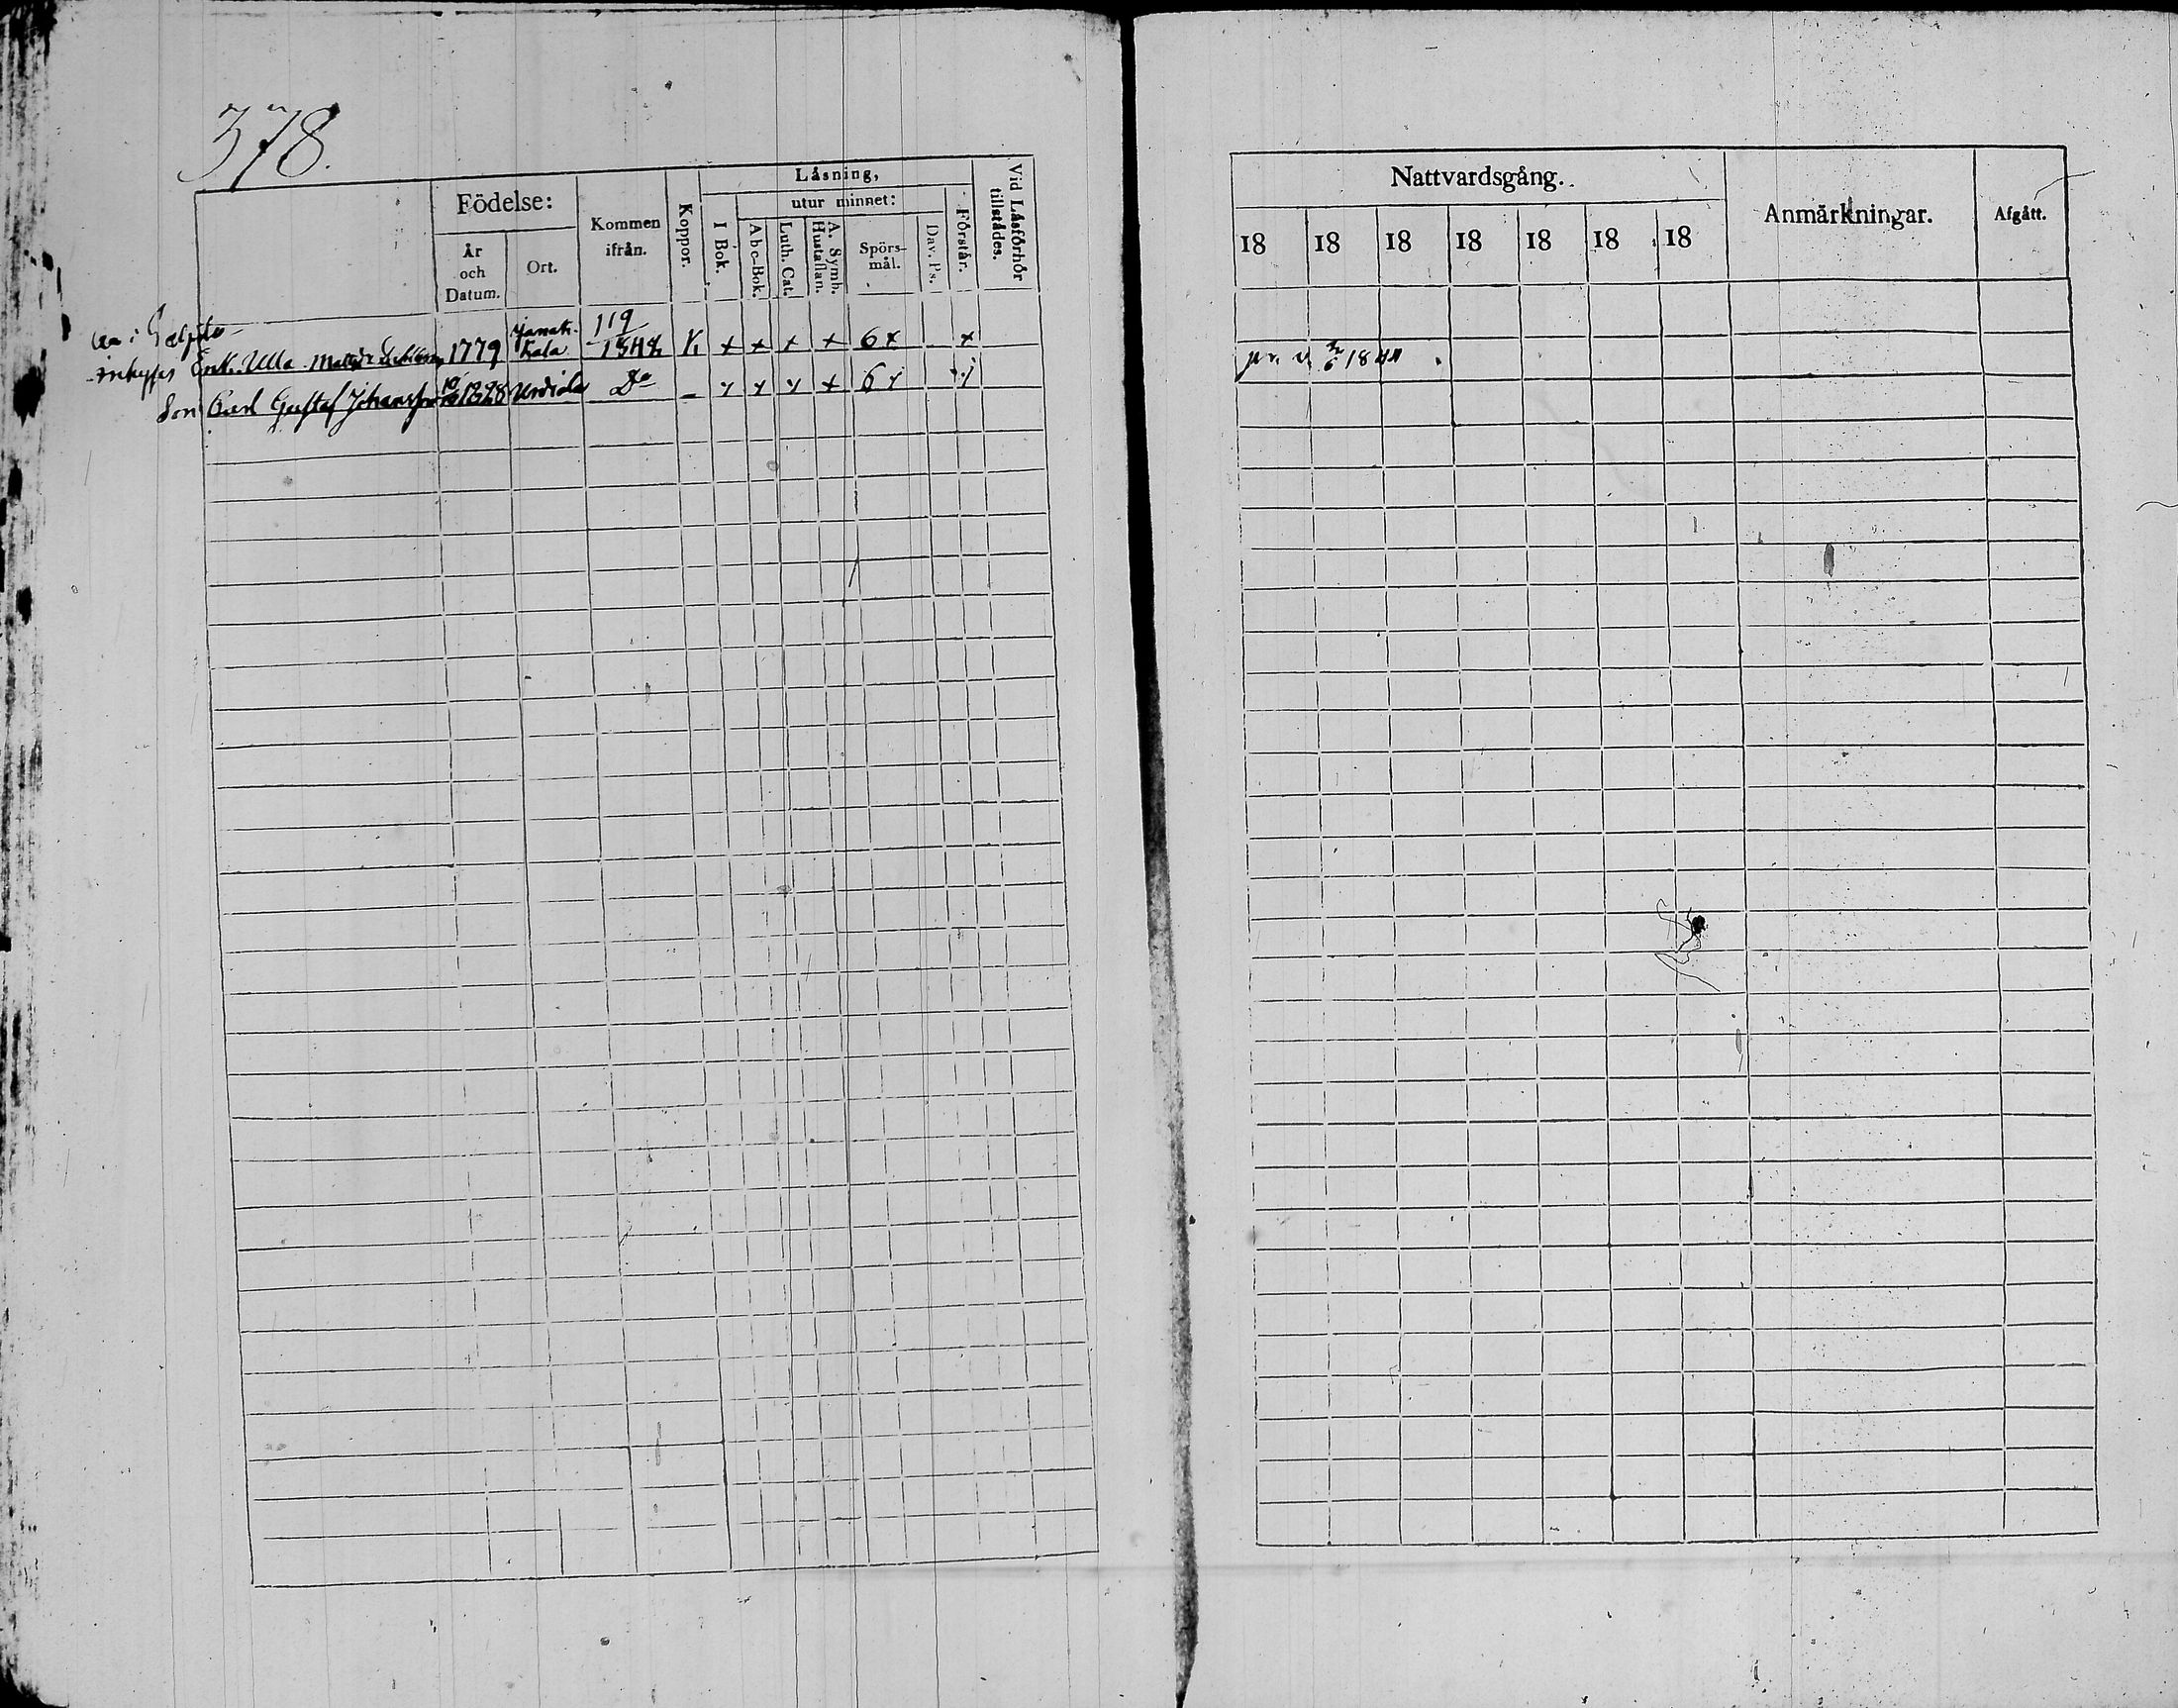 378.
Födelse:
År och Datum.
Ort.
Kommen ifrån.
Koppor.
Låsning,
I Bok.
utur minnet:
Abc-Bok.
Luth. Cat.
A. Symb. Hustaflan.
Spörs-mål.
Dav. Ps.
Förstår.
Vid Låsförhör tillstådes.
Enk. Ulla 1779 119
K + + + + 6 + +
Son Carl Gustaf Johansson 1828 Urdiala Do
Nattvardsgång.
18 18 18 18 18 18 18
Anmärkningar.
Afgått.
1844